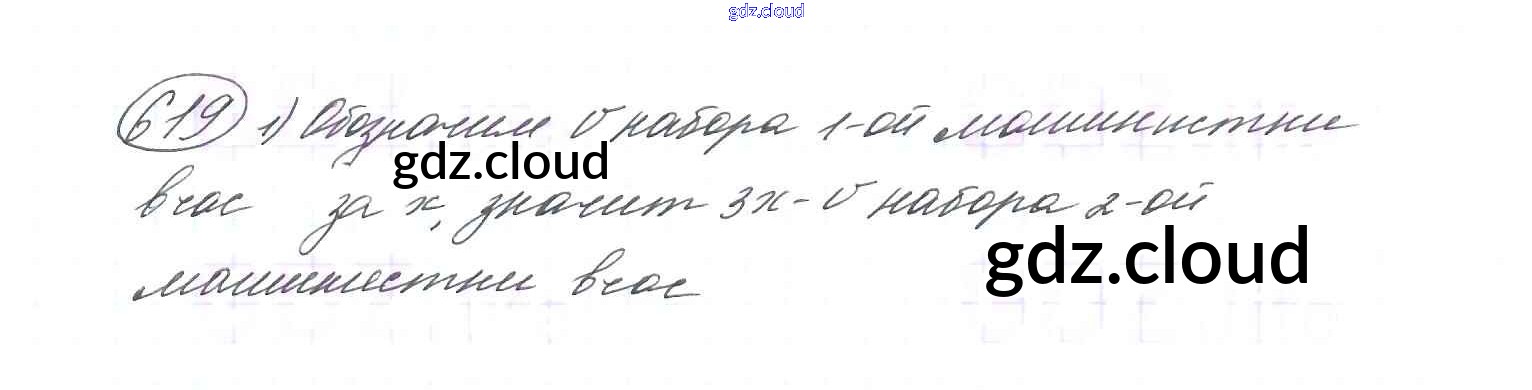 gdz.cloud
619 1) Обозначим V набора 1-ой машинистки
gdz.cloud
в час за x, значит 3x - V набора 2-ой
gdz.cloud
машинистки в час